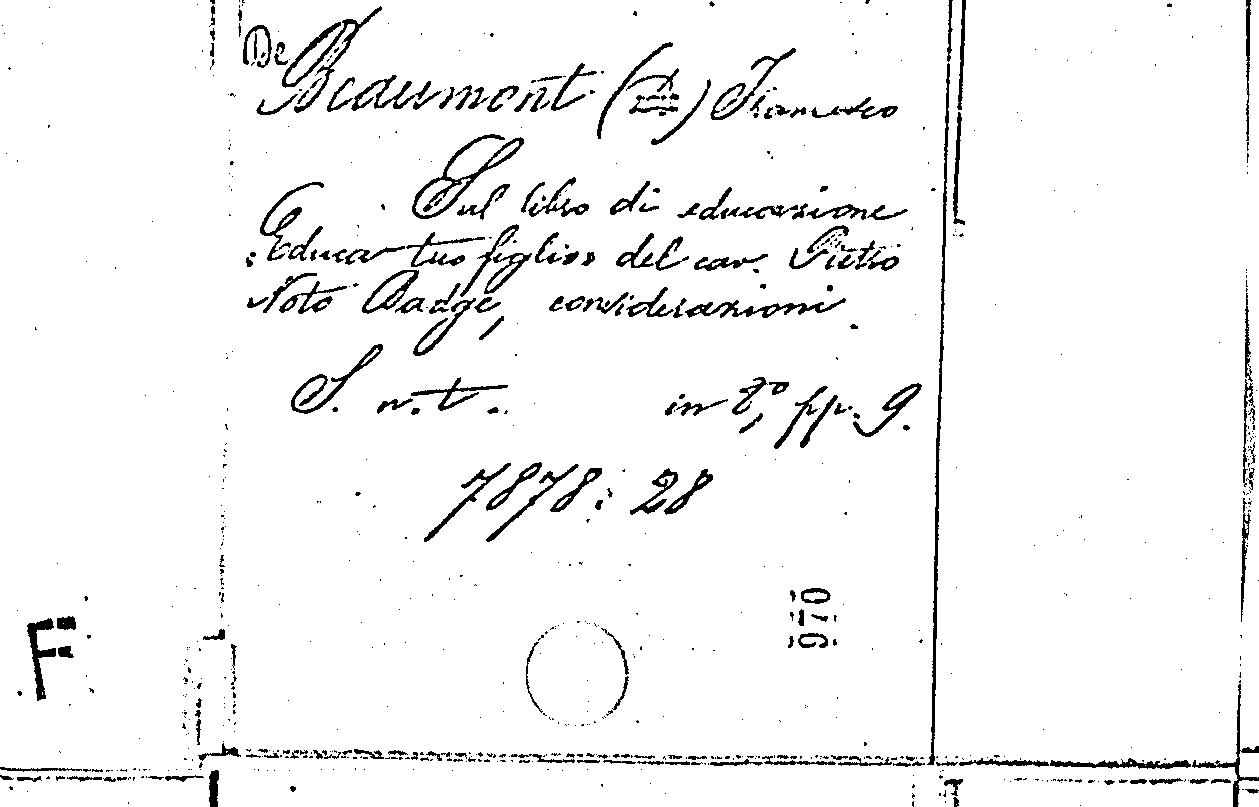 De Beaumont (De) Francesco
Sul libro di educazione
"Educa tuo figlio" del cav. Pietro
Noto Badge, considerazioni.
S. n. t. in 8°, pp. 9.
7878: 28
970
F